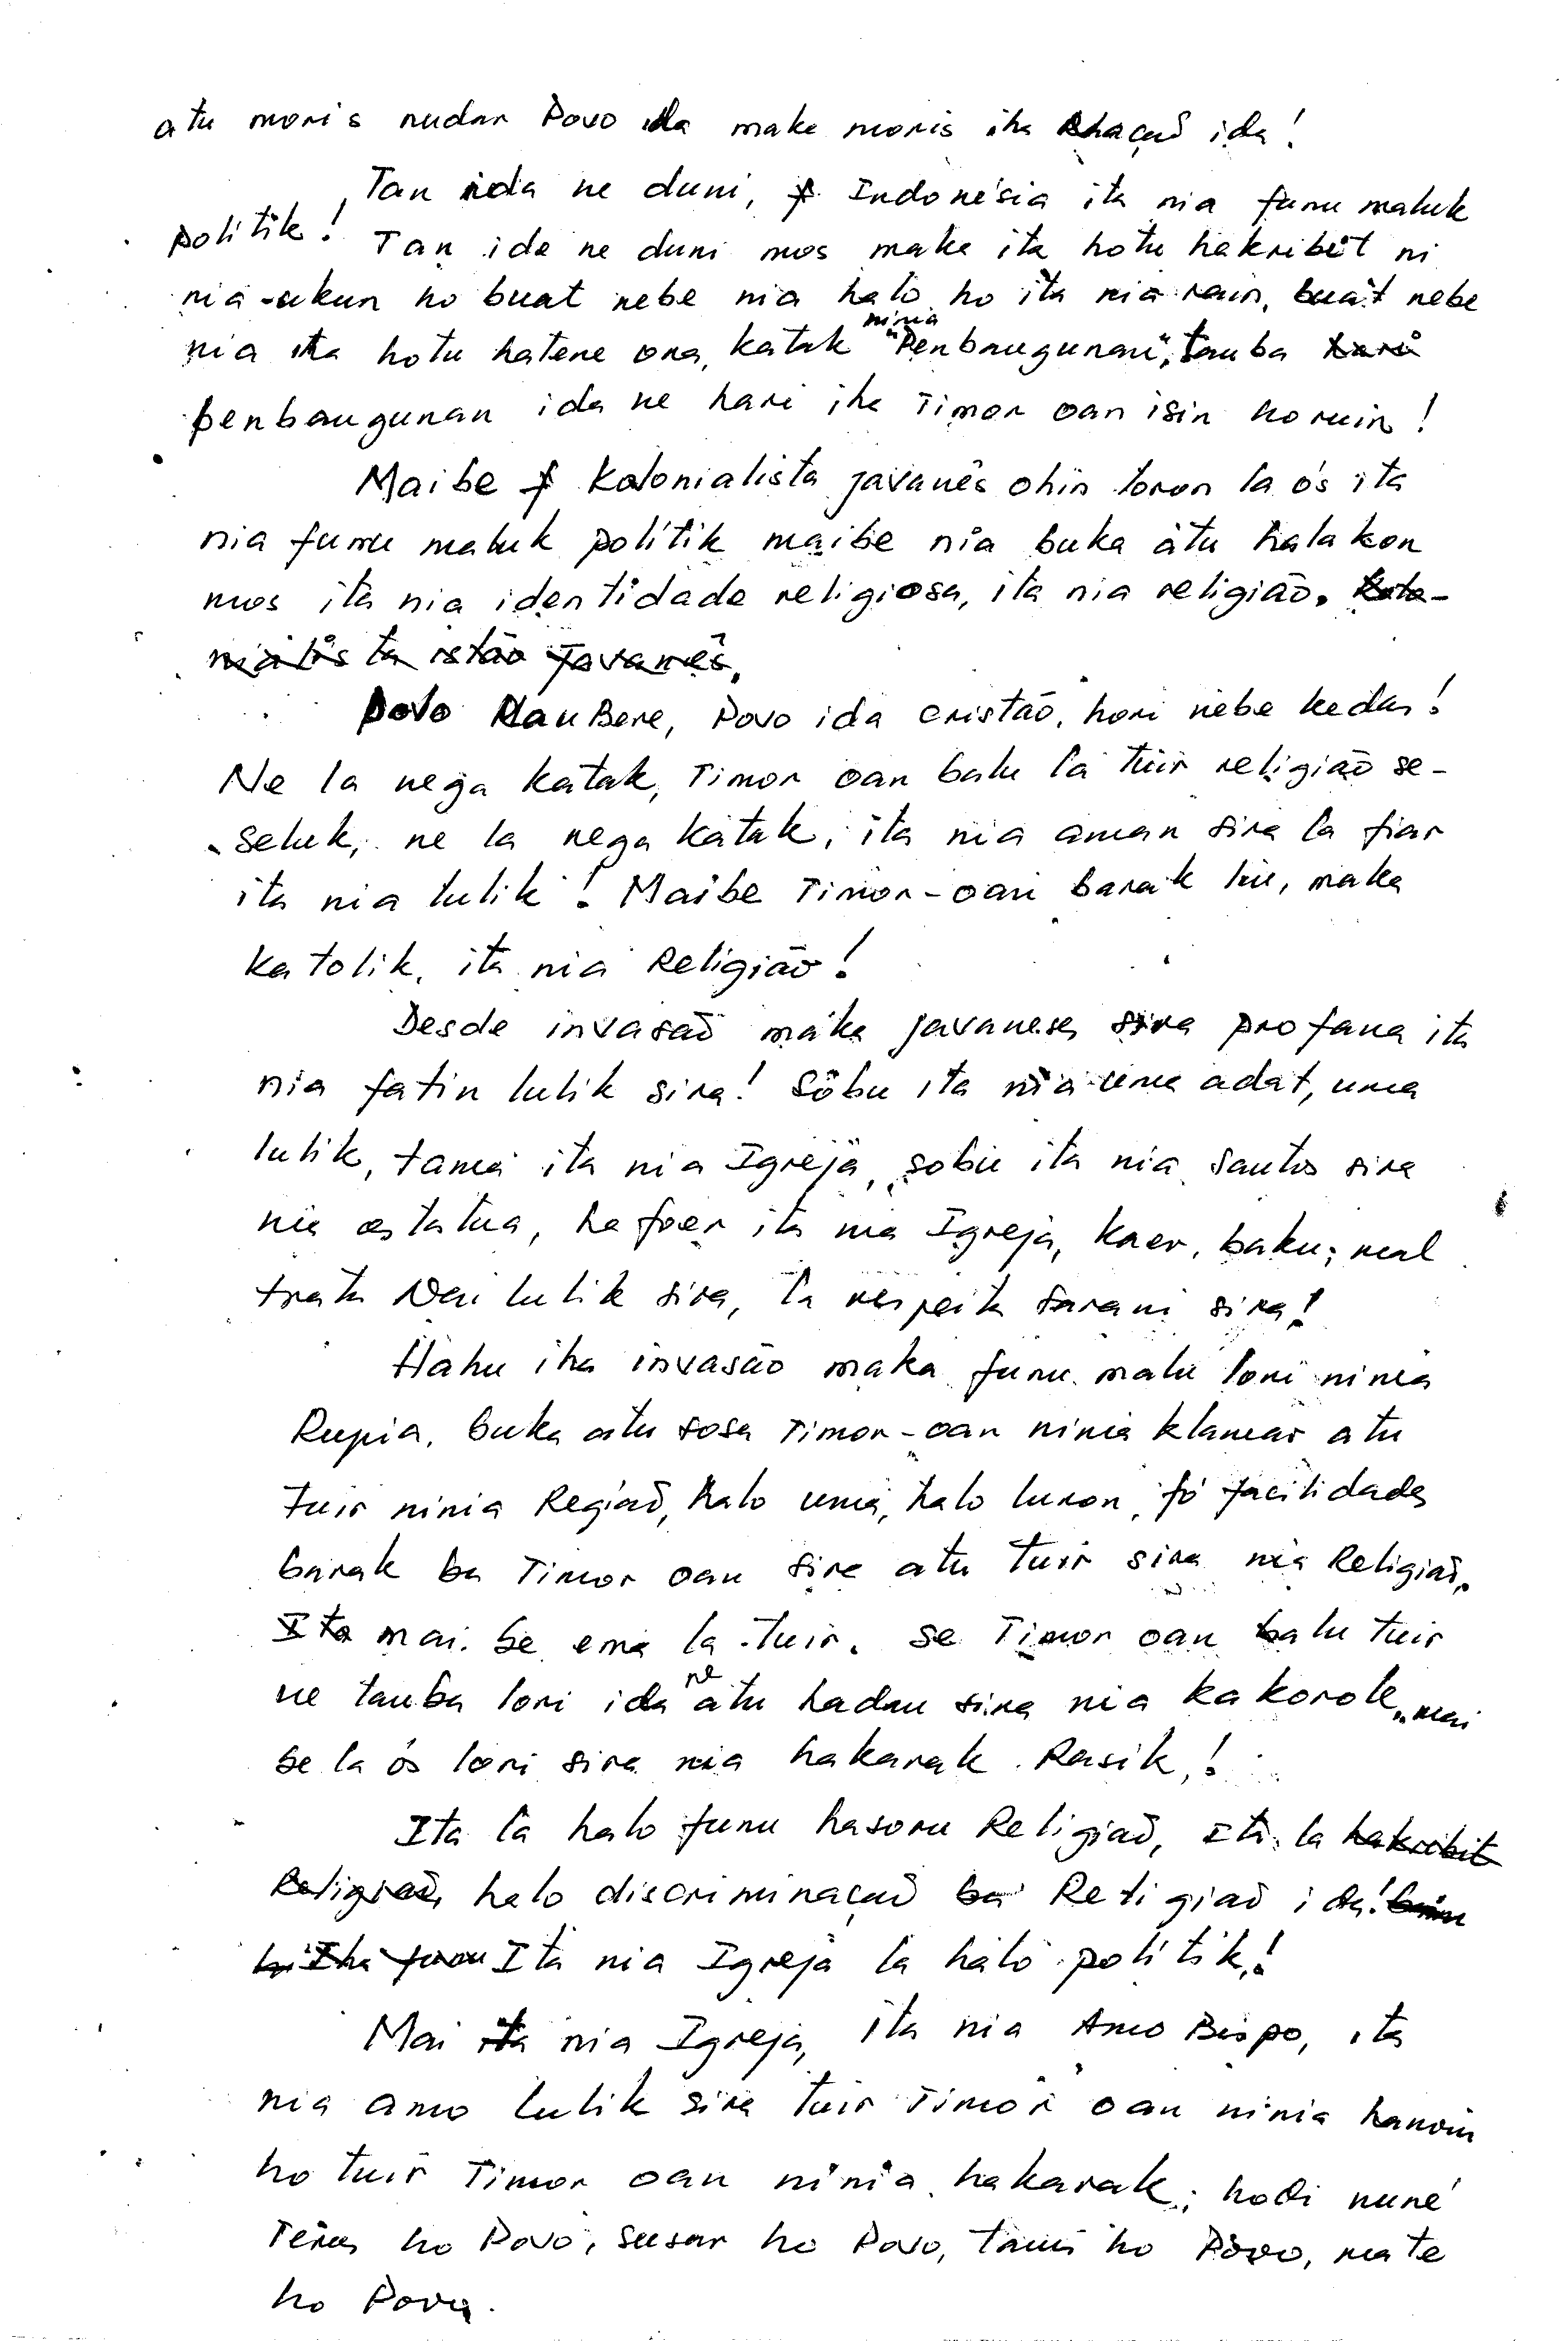 atu moris nudar Povo ida make moris iha Nação ida!
Tan ida ne duni, Indonésia ita nia funu maluk
politik! Tan ida ne duni mos maka ita hotu hakribit ni
nia-ukun ho buat nebe nia halo ho ita nia rain, buat nebe
nia ita hotu hatene ona, katak ninia "Penbangunan", tauba
penbangunan ida ne hari iha Timor oan isin ho ruin!
Maibe kolonialista javanês ohin loron la ós ita
nia funu maluk politik maibe nia buka atu halakon
mos ita nia identidade religiosa, ita nia religião. Kolo-
nialista istão Javanês.
Povo MauBere, Povo ida cristão, hori nebe kedas!
Ne la nega katak, Timor oan balu la tuir religião se-
seluk, ne la nega katak, ita nia aman sira la fiar
ita nia lulik! Maibe Timor-oan barak liu, maka
katolik, ita nia Religião!
Desde invasão maka javaneses sira profana ita
nia fatin lulik sira! Sôbu ita nia uma adat, uma
lulik, tama ita nia Igreja, sobu ita nia santos sira
nia estatua, hafoer ita nia Igreja, kaer, baku, mal
trata Nai lulik sira, la respeita sarani sira!
Hahu iha invasão maka funu malu lori ninia
Rupia, buka atu sosa Timor-oan ninia klamar atu
tuir ninia Regiaõ, halo uma, halo luron, fó facilidades
barak ba Timor oan sira atu tuir sira nia Religiaõ.
Ita mai be ema la tuir. Se Timor oan balu tuir
ne tauba lori ida ne atu hadau sira nia kakorok, mai
be la ós lori sira nia hakarak Rasik!
Ita la halo funu hasoru Religiaõ, ita la hakribit
Religiaõ, halo discriminaçaõ ba Religiaõ ida!
Iha funu Ita nia Igreja la halo politik!
Mai ita nia Igreja, ita nia Amo Bispo, ita
nia amo lulik sira tuir Timor oan ninia hanoin
ho tuir Timor oan ninia hakarak; hodi nuné
Terus ho Povo, susar ho Povo, tanis ho Povo, mate
ho Povo.